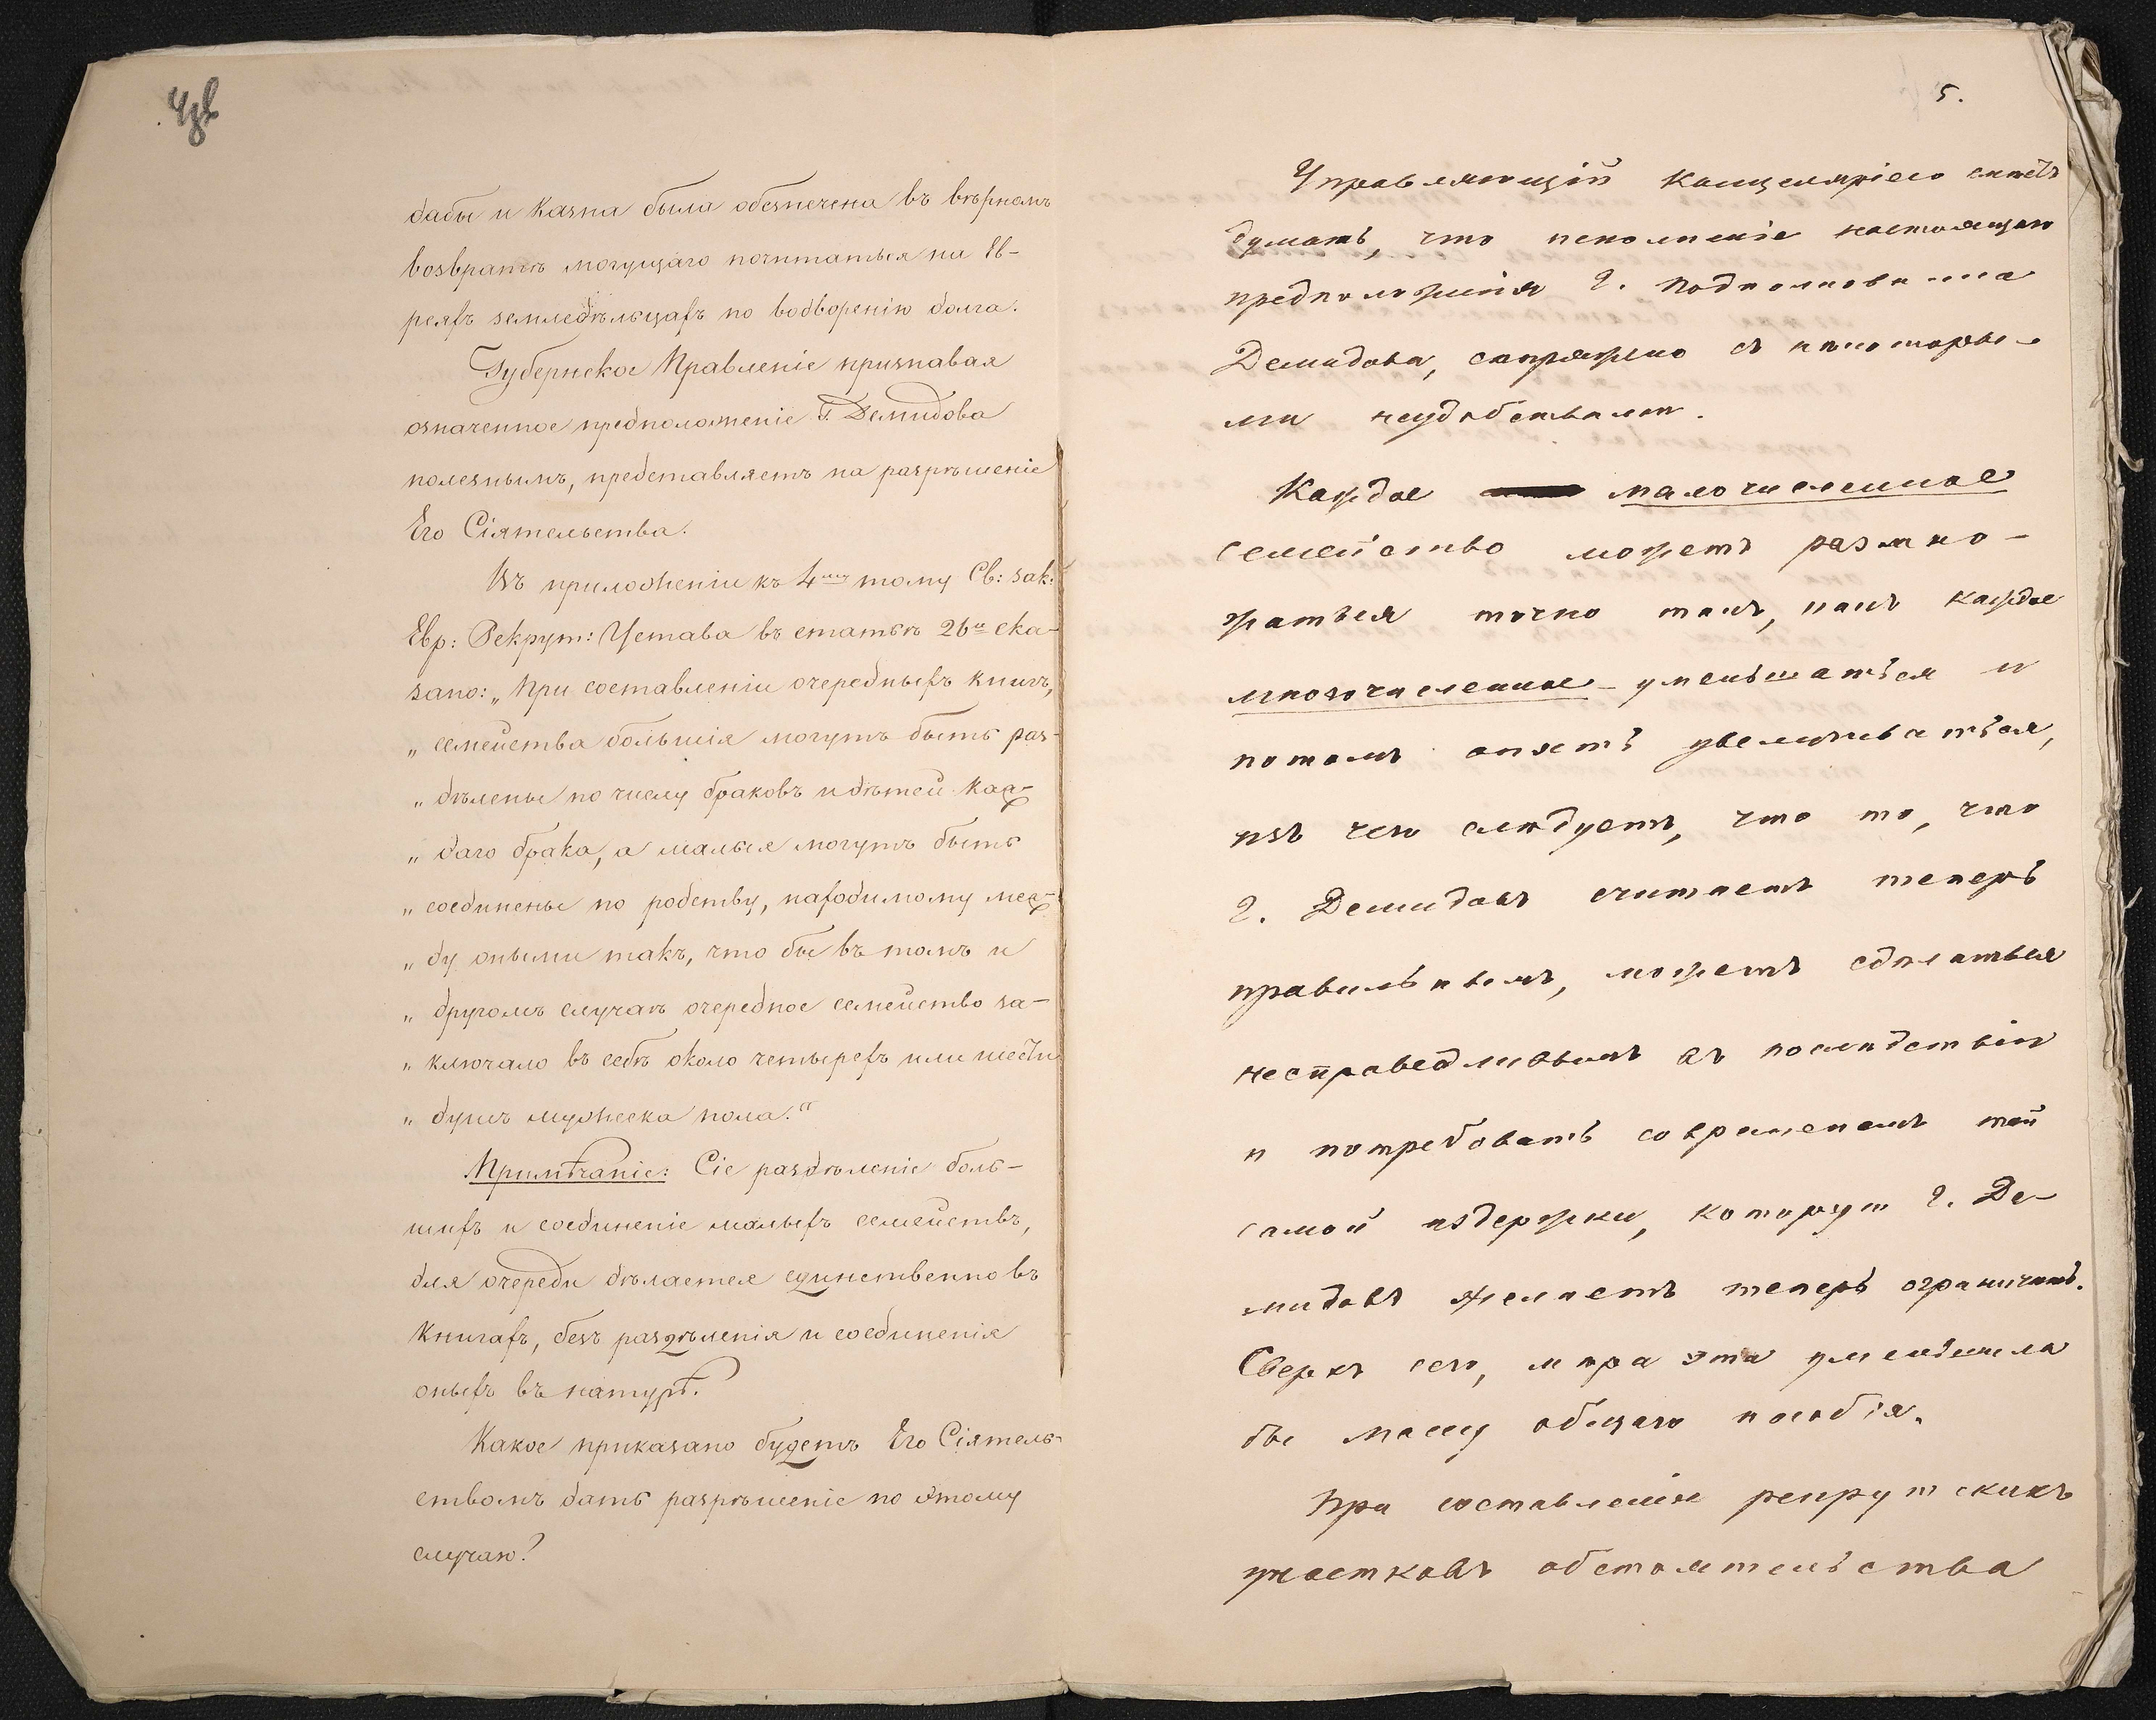 дабы и Казна была обезпечена въ вѣрномъ
возвратѣ могущаго почитаться на Ев-
реяхъ земледѣльцахъ по водворенію долга.
Губернское Правленіе признавая
означенное предположеніе Г. Демидова
полезнымъ, представляетъ на разрѣшеніе
Его Сіятельства.
Въ приложеніи къ 4му тому Св: зак:
Евр: Рекрут: Устава въ статьѣ 26й ска-
зано: „При составленіи очередныхъ книгъ,
„ семейства большія могутъ быть раз-
„ дѣлены по числу браковъ и дѣтей каж-
„ даго брака, а малыя могутъ быть
„ соединены по родству, находимому меж-
„ ду оными такъ, что бы въ томъ и
„ другомъ случаѣ очередное семейство за-
„ ключало въ себѣ около четырехъ или шести
„ душъ мужеска пола."
Примѣчаніе: Сіе раздѣленіе боль-
шихъ и соединеніе малыхъ семействъ,
для очереди дѣлается единственно въ
Книгахъ, безъ раздѣленія и соединенія
оныхъ въ натурѣ.
Какое приказано будетъ Его Сіятель-
ствомъ дать разрѣшеніе по этому
случаю?
5.
Управляющій Канцеляріею смѣетъ
думать, что исполненіе настоящаго
предположенія г. Подполковника
Демидова, сопряжено съ нѣкоторы-
ми неудобствами.
Каждое малочисленное
семейство можетъ размно-
жаться точно такъ, какъ каждое
многочисленное - уменьшаться и
потомъ опять увеличиваться,
изъ чего слѣдуетъ, что то, что
г. Демидовъ считаетъ теперь
правильнымъ, можетъ сдѣлаться
несправедливымъ въ послѣдствіи
и потребовать со временемъ той
самой издержки, которую г. Де-
мидовъ желаетъ теперь ограничить.
Сверхъ сего, мѣра эта уменьшила
бы массу общаго пособія.
При составленіи рекрутскихъ
участковъ обстоятельства